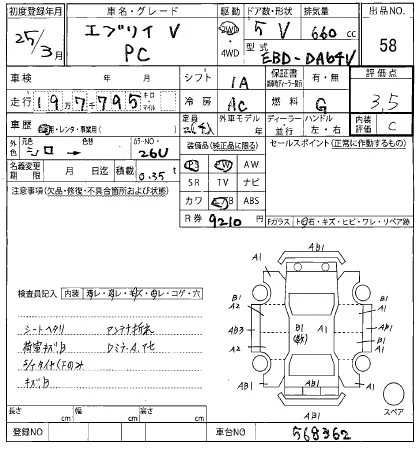 初度登録年月 車名・グレード 駆動 ドア数・形状 排気量 出品NO.
25/3月 エブリイ V 2WD 5 V 660 cc 58
PC ・4WD 型式 EBD-DA64V
車検 年 月 シフト IA 保証書 有・無 評価点
走行 19万7795 キロ・マイル 冷房 AC 燃料 G 3,5
車歴 自家用・レンタ・事業用( ) 定員 2(4)人 外車年式 ディーラー・並行 ハンドル 左・右 内装評価 C
外色 元色 シロ → 色替 カラーNO・ 26U 装備品(純正品に限る) セールスポイント(正常に作動するもの)
名義変更期限 月 日迄 積載 0.35 t PS PW AW
SR TV ナビ
注意事項(欠品・修復・不具合箇所および状態) カワ エアB ABS
R券 9210 円 Fガラス トビ石・キズ・ヒビ・ワレ・リペア跡
AB1
A1 A1
検査員記入 内装 汚レ・スレ・キズ・コゲ・穴
B1
A2 A1
シートヘタリ アンテナ折れ
AB3 B1 A1 A1
荷室キズ,B Dミラー,A,アセ
A2 B1
キズB
AB1 A1
AB1 スペア
長さ cm 幅 cm 高さ cm
登録NO 車台NO 568362